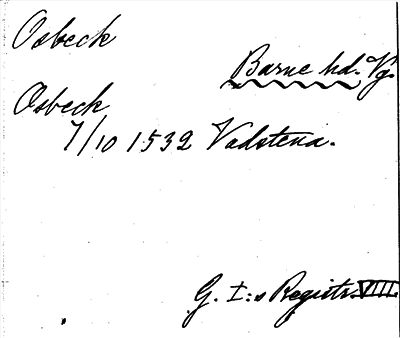 Osbeck
Barne hd. Vg.
Osbeck
7/10 1532 Vadstena.
G. I:s Registr. VIII